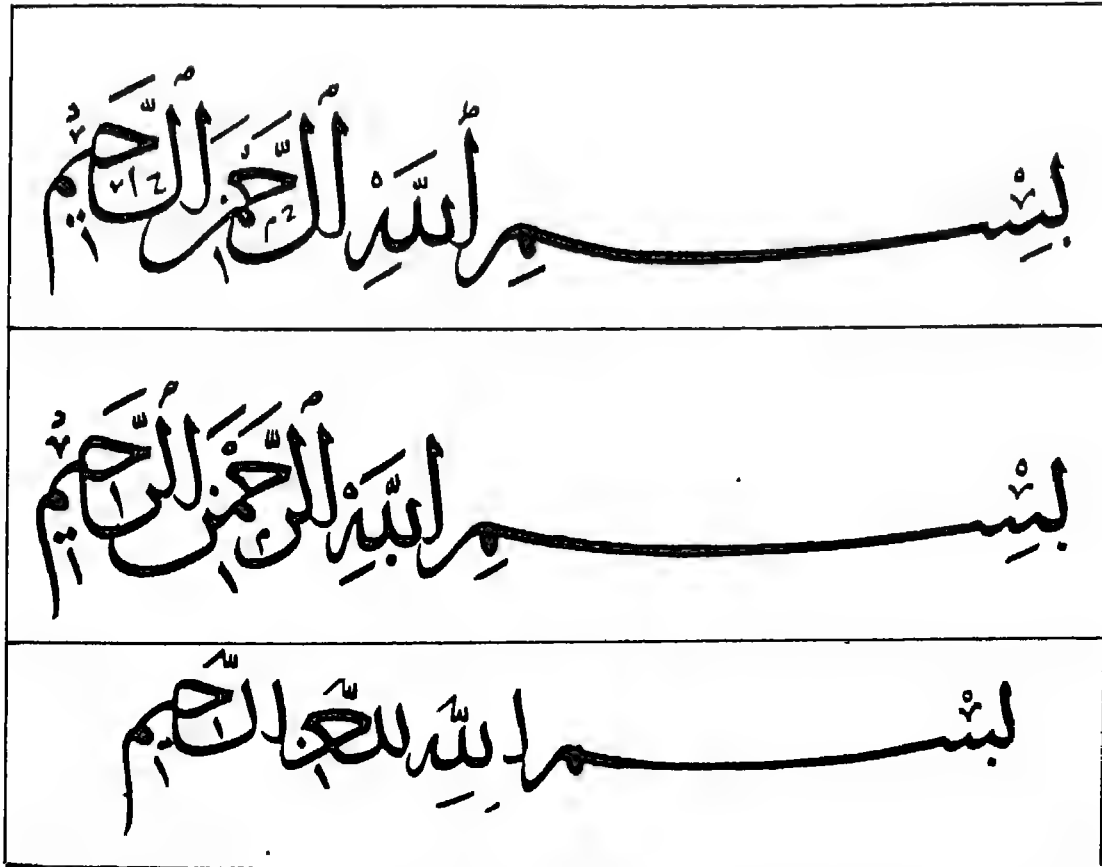 بِسْمِ ٱللَّهِ ٱلرَّحْمَنِ ٱلرَّحِيمِ
بِسْمِ اللَّهِ ٱلرَّحْمَنِ ٱلرَّحِيمِ
بسْمِ اللَّهِ الرَّحمن الرَّحيم